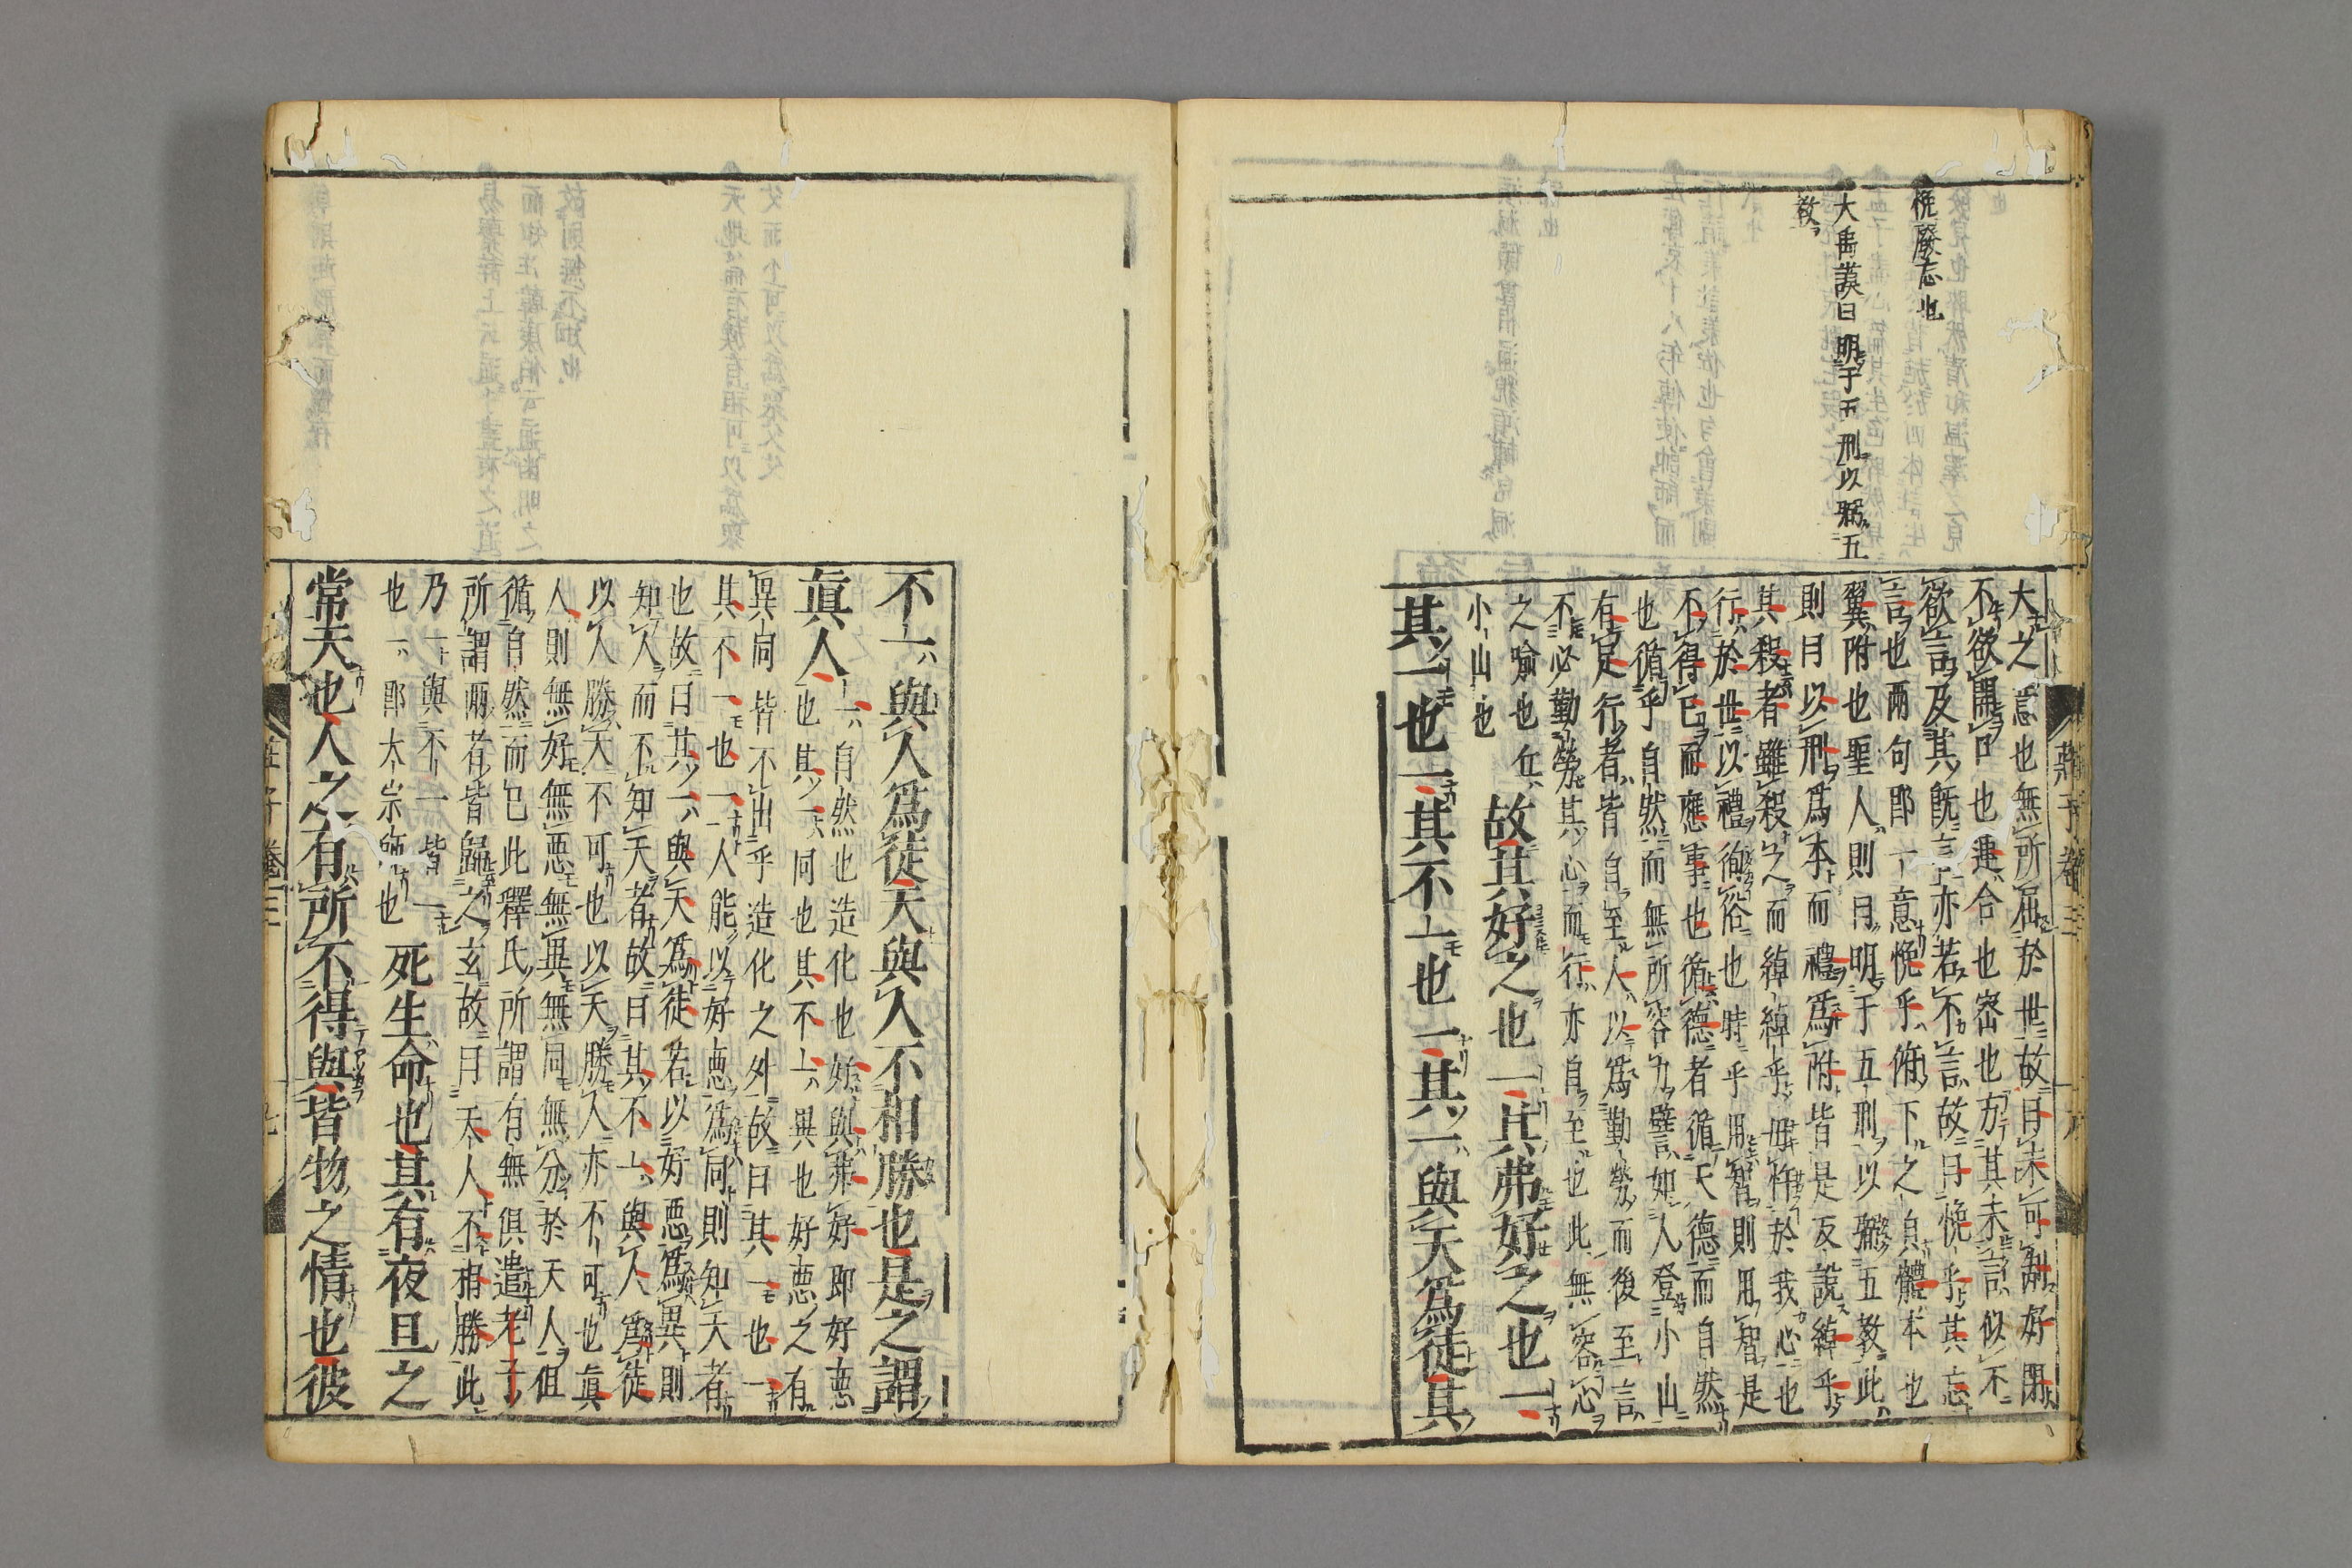 悗廢忘也
大禹謨曰明于五刑以弼五
教
莊子卷三
大之意也無所屈於世故曰未可制好閉
不欲開口也連合也密也方其未言似不
欲言及其既言亦若不言故曰悗乎其忘
言也兩句即一意悗乎俯下之貟體本也
翼附也聖人則曰明于五刑以弼五教此
則曰以刑爲本而禮爲附皆是反說綽乎
其殺者雖殺之而綽綽乎無忤於我心也
行於世以禮徇俗也時乎用智則用智是
不得已而應事也循德者循天德而自然
也循乎自然而無所容力譬如人登小山
有足行者皆自至人以爲勤勞而後至言
不必勤勞其心而行亦自至也此無容心
之喻也丘
小山也
故其好之也一其弗好之也一
其一也一其不一也一其一與天爲徒其
不一與人爲徒天與人不相勝也是之謂
眞人
一自然也造化也好與弗好即好惡
也其一同也其不一異也好惡之有
異同皆不出乎造化之外故曰其一也一
其不一也一人能以好惡爲同則知天者
也故曰其一與天爲徒若以好惡爲異則
知人而不知天者故曰其不一與人爲徒
以人勝天不可也以天勝人亦不可也眞
人則無好無惡無異無同無分於天人但
循自然而已此釋氏所謂有無俱遣老子
所謂兩者皆歸之玄故曰天人不相勝此
乃一與不一皆一
也一即大宗師也
死生命也其有夜旦之
常天也人之有所不得與皆物之情也彼
莊子卷三